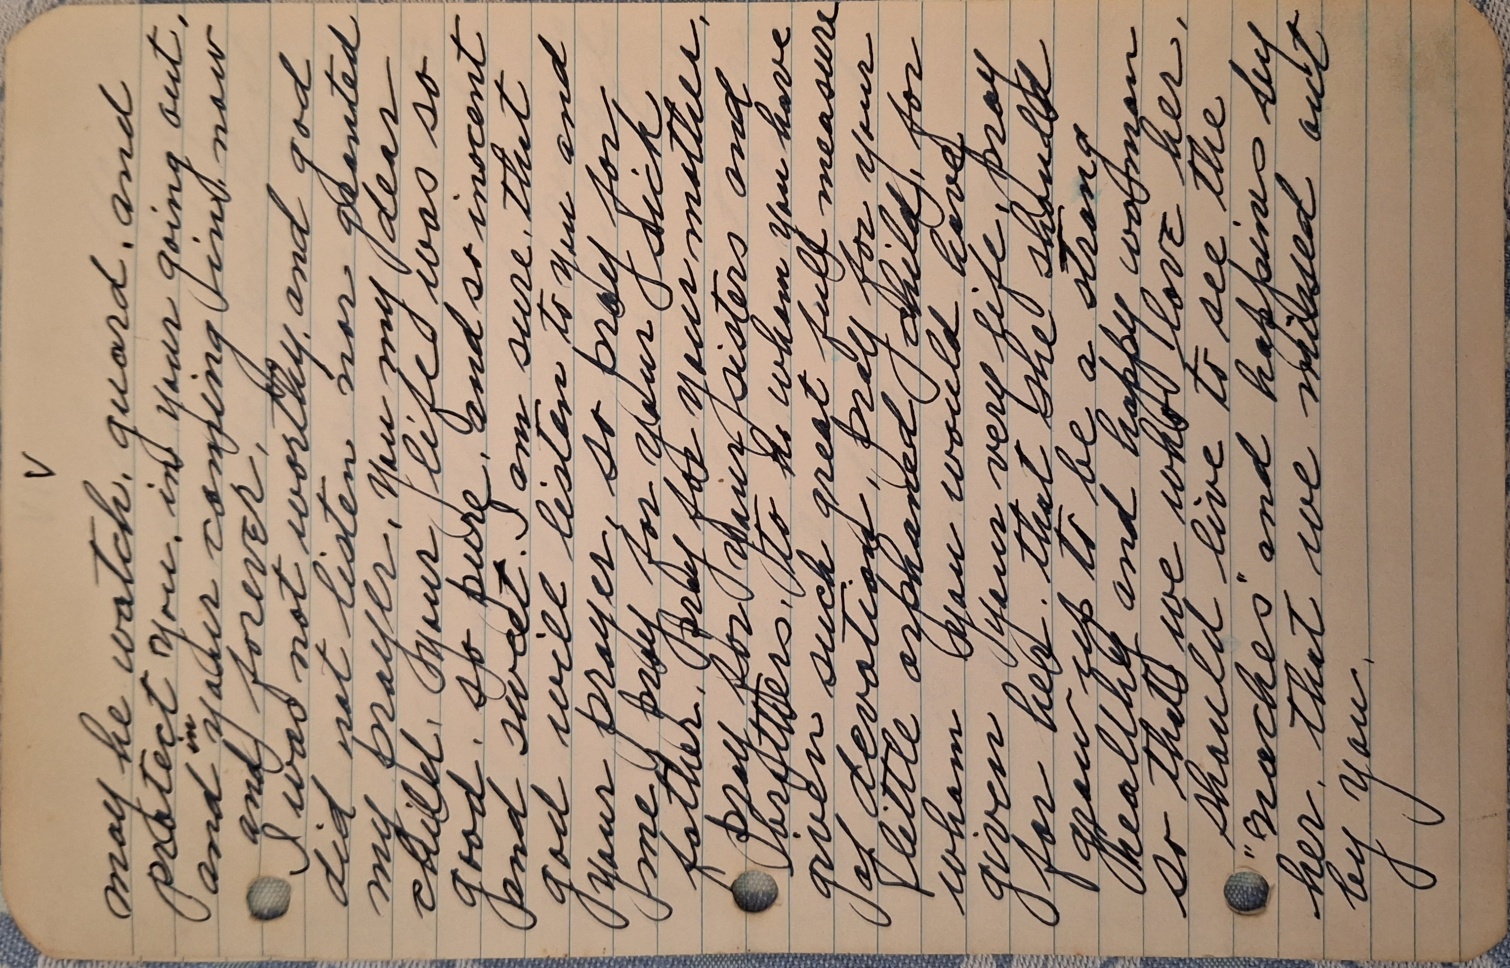 V
may he watch, guard, and
protect you, in your going out,
and in your comjing jin, now
and forever.
I was not worthy, and god
did not listen nor granted
my prayer, you my dear
child, your life was so
good, so pure, and so inocent
and sweet. I am sure, that
god will listen to you and
your prayer, so pray for
me, pray for your sick
father. Pray for your mother,
pray for your sisters and
brothers, to whom you have
given such great full measure
of devotion, pray for your
little orphaned child, for
whom you would have
given your very life, pray
for her. that she should
grow up to be a strong
healthy and happy woman
so that we who love her,
should live to see the
"naches" and happines by
her, that we missed out
by you.